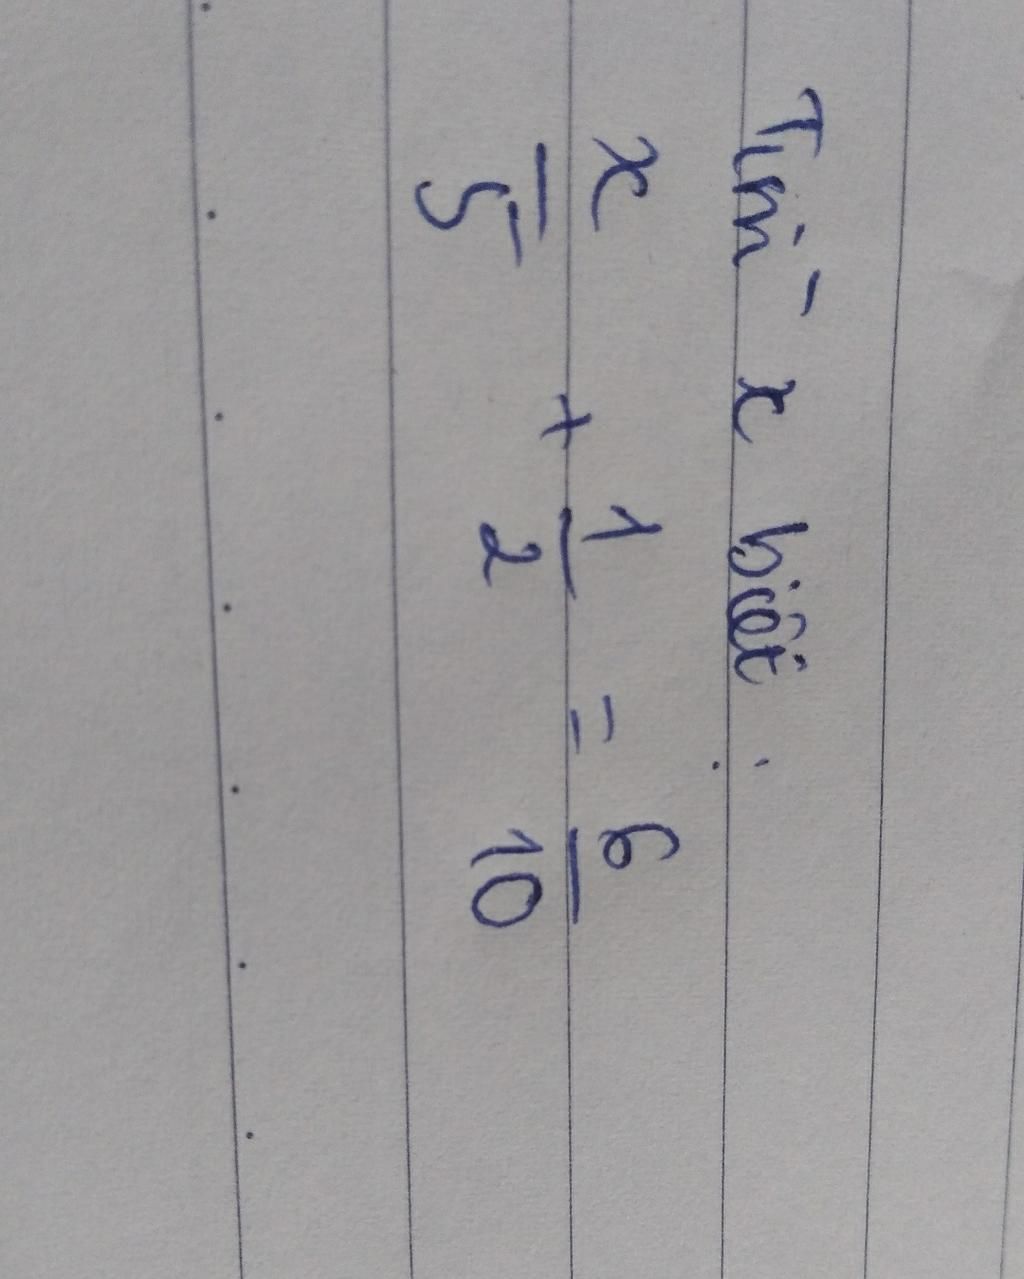 Tìm x biết :
x/5 + 1/2 = 6/10